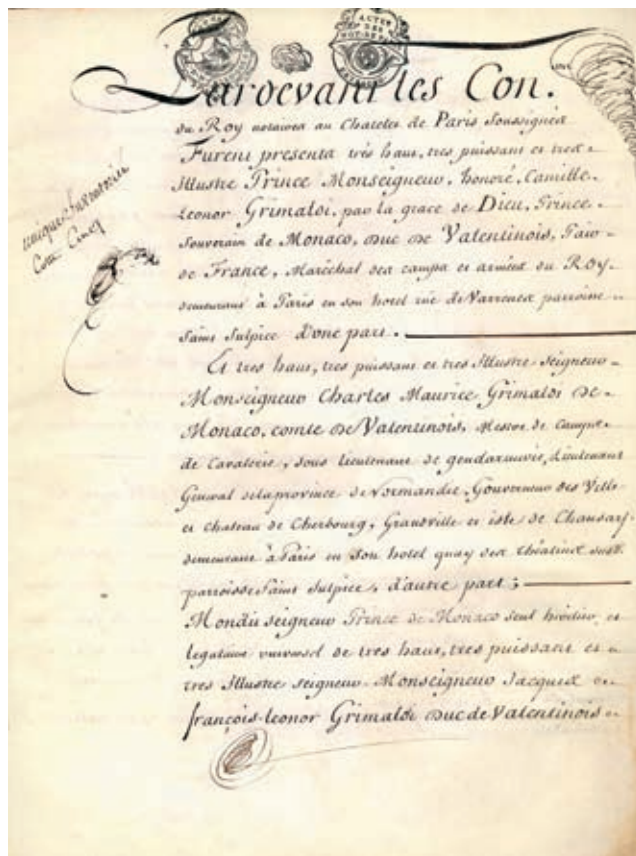 ACTES
DES
NOTRES
Pardevant les Con.
du Roy notaires au Chatelet de Paris soussignés
Furent presents très haut, tres puissant et tres
Illustre Prince Monseigneur, honoré, Camille
Leonor Grimaldi, par la grace de Dieu, Prince
Souverain de Monaco, Duc de Valentinois, Pair
de France, Maréchal des camps et armées du Roy
demeurant à Paris en son hotel rue de Varennes parroisse
Saint Sulpice d'une part.
Et tres haut, tres puissant et tres Illustre Seigneur
Monseigneur Charles Maurice Grimaldi de
Monaco, comte de Valentinois, Mestre de Camp
de Cavalerie, sous Lieutenant de gendarmerie, Lieutenant
General de la province de Normandie, Gouverneur des Ville
et chateau de Cherbourg, Granville et isle de Chausay
demeurant à Paris en son hotel quay des théatins susd.
parroisse Saint Sulpice, d'autre part;
Mondit seigneur Prince de Monaco seul héritier, et
legataire universel de tres haut, tres puissant et
tres Illustre seigneur Monseigneur Jacques
françois Leonor Grimaldi Duc de Valentinois